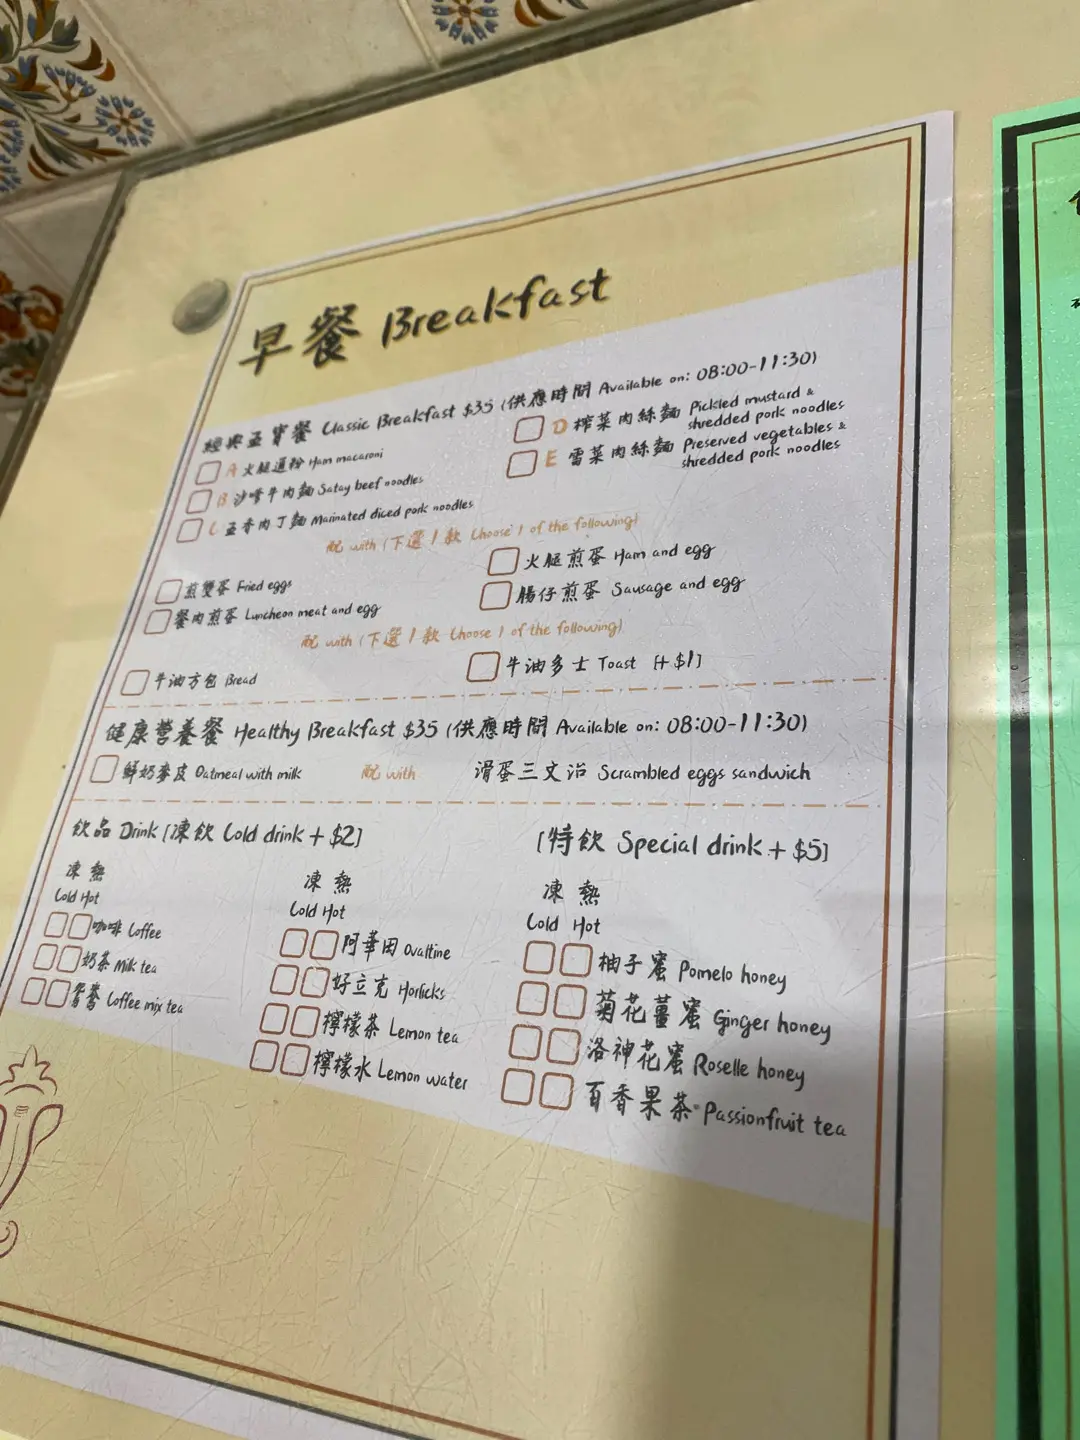 早餐 Breakfast
經典孖寶餐 Classic Breakfast $35 (供應時間 Available on: 08:00-11:30)
A 火腿通粉 Ham macaroni
B 沙嗲牛肉麵 Satay beef noodles
C 五香肉丁麵 Marinated diced pork noodles
D 榨菜肉絲麵 Pickled mustard & shredded pork noodles
E 雪菜肉絲麵 Preserved vegetables & shredded pork noodles
配 with (下選1款 Choose 1 of the following)
煎雙蛋 Fried eggs
火腿煎蛋 Ham and egg
餐肉煎蛋 Luncheon meat and egg
腸仔煎蛋 Sausage and egg
配 with (下選1款 Choose 1 of the following)
牛油方包 Bread
牛油多士 Toast [+$1]
健康營養餐 Healthy Breakfast $35 (供應時間 Available on: 08:00-11:30)
鮮奶麥皮 Oatmeal with milk 配 with 滑蛋三文治 Scrambled eggs sandwich
飲品 Drink [凍飲 Cold drink + $2]
凍 熱
Cold Hot
咖啡 Coffee
奶茶 Milk tea
鴛鴦 Coffee mix tea
凍 熱
Cold Hot
阿華田 Ovaltine
好立克 Horlicks
檸檬茶 Lemon tea
檸檬水 Lemon water
[特飲 Special drink + $5]
凍 熱
Cold Hot
柚子蜜 Pomelo honey
菊花薑蜜 Ginger honey
洛神花蜜 Roselle honey
百香果茶 Passionfruit tea